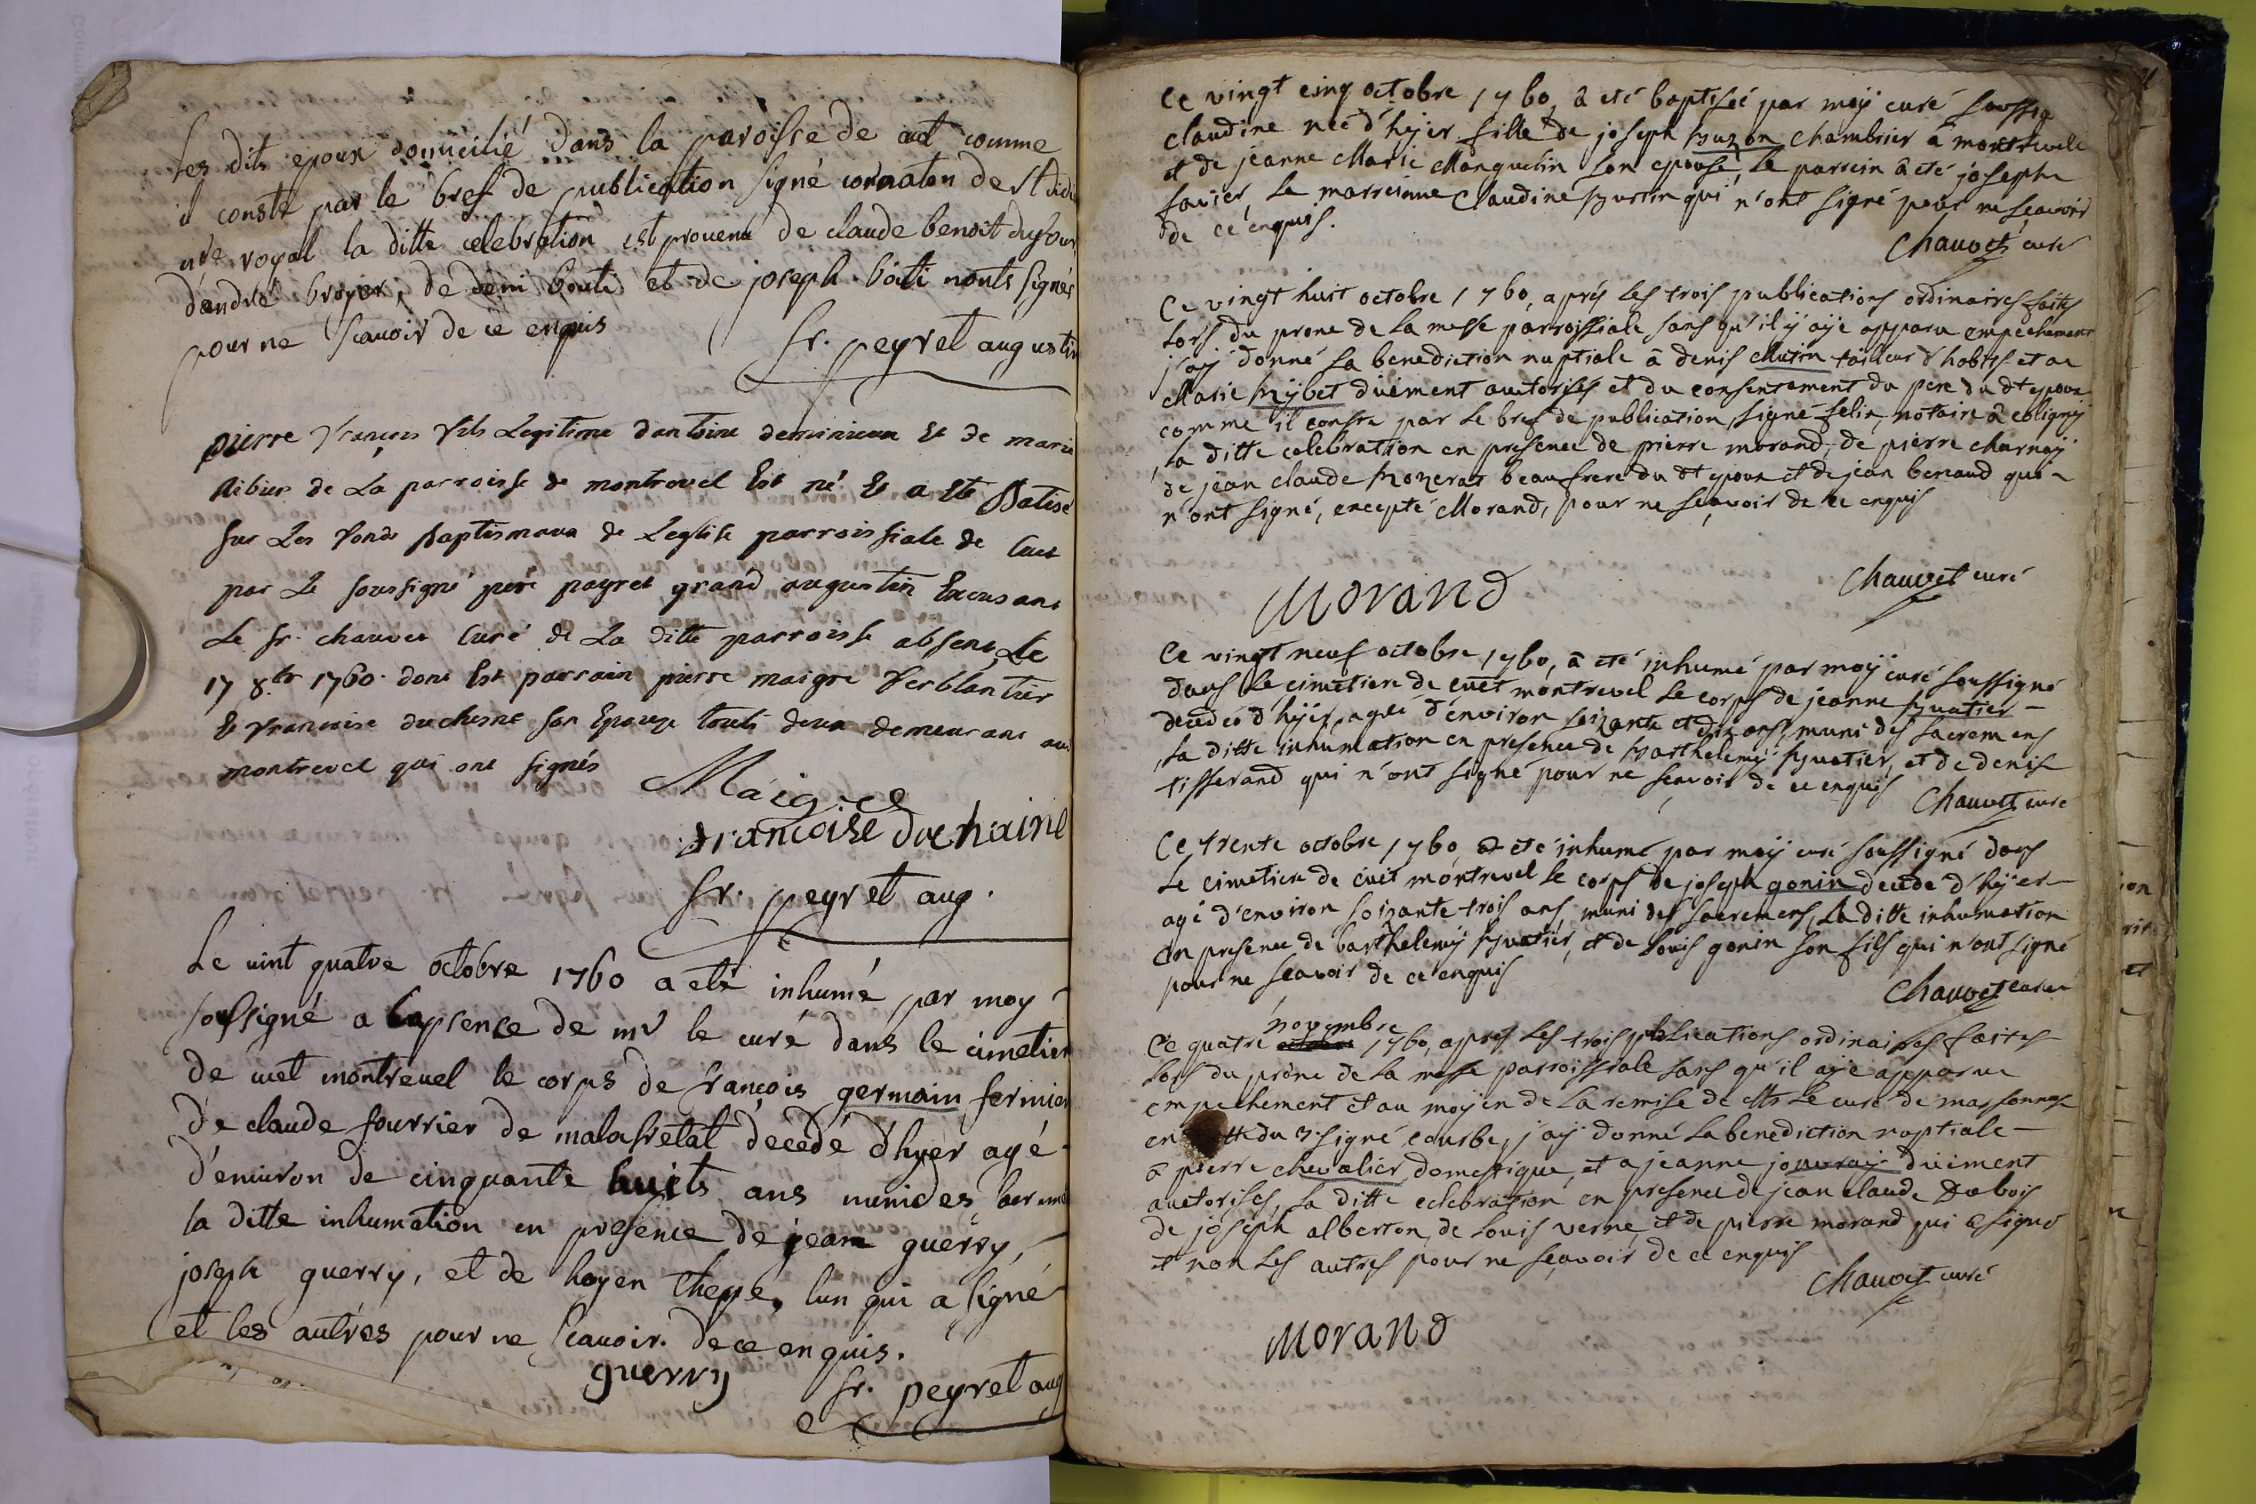 Les dits epoux domicilié dans la paroisse de cuet comme
il conste par le bref de publication signé cornaton de st didi
nre royal la ditte celebration est provenu de claude benoit dufour
d'andré broyer, de deni bouti et de joseph bouti nonts signés
pour ne scavoir de ce enquis
fr. peyret augustin
pierre françois fils Legitime dantoine et de marie
de La parroisse de montrevel Est né Et a Eté Batisé
sur Les fonds Baptismaux de Leglise parroissiale de Cuet
par Le soussigné peré payret grand augustin Excusant
Le sr. chauvet Curé de La ditte parroisse absent, Le
17 8.bre 1760. dont Est parrain pierre maigre ferblantier
Et francoise duchesne son Epouze touts deux demeurant au
montrevel qui ont signés
Maigre
francoise duchaine
fr. peyret aug.
Le vint quatre octobre 1760 a eté inhumé par moy
sousigné a labsence de mr le curé dans le cimetier
de cuet montrevel le corps de françois germain fermier
de claude fourrier de malafretat décedé d'hyer agé
d'environ de cinquante huits ans munides
la ditte inhumation en presence de jean guerry,
joseph guerry, et de l'un qui a signé
et les autres pour ne scavoir de ce enquis.
guerry
fr. peyret aug
Ce vingt cinq octobre 1760, â eté baptisée par moÿ curé soussig
claudine née d'hÿer fille de joseph buzon chambrier â montrevelle
et de jeanne Marie Manguelin son epouse, le parrein â eté joseph
favier, la marreinne Claudine qui n'ont signé pour ne scavoir
de ce enquis.
Chauvet curé
Ce vingt huit octobre 1760, aprés les trois publications ordinaires faites
lors du prone de la messe parroissiale sans qu'il ÿ aÿe apparu empechement
j'aÿ donné la benediction nuptiale â denis tailleur d'habits et a
Marie duëment auctorisés et du consentement du pere du dt epoux
comme il conste par le bref de publication signé felix, notaire â colignÿ
la ditte celebration en presence de pierre morand, de pierre charnaÿ
de jean claude beaufrere du dt epoux et de jean beraud qui
n'ont signé, excepté Morand, pour ne sçavoir de ce enquis
Chauvet curé
Morand
Ce vingt neuf octobre 1760, â eté inhumé par moÿ curé soussigné
dans le cimetiere de cuet montrevel le corps de jeanne buatier
decedeé d'hÿer, agée d'environ soizante et dix ans, muni des sacremens
la ditte inhumation en presence de barthelemÿ buatier, et de denis
tisserand qui n'ont signé pour ne sçavoir de ce enquis
Chauvet curé
Ce trente octobre 1760 a eté inhumé par moÿ curé soussigné dans
le cimetiere de cuet montrevel le corps de joseph gonin decede d'hÿer
agé d'environ soizante-trois ans, muni des sacremens, la ditte inhumation
en presence de barthelemÿ buatier, et de louis gonin son fils qui n'ont signé
pour ne scavoir de ce enquis
Chauvet curé
novembre
Ce quatre octobre 1760, apres les trois publications ordinaires faites
lors du prône de la messe parroissiale sans qu'il aÿe apparue
empechement et au moÿen de la remise de Mr le curé de massonnax
en datte du 3. signé courbe, j'aÿ donné la benediction nuptiale
â pierre chevalier domestique, et a jeanne jouvraÿ duëment
auctorisés, la ditte celebration en presence de jean claude Dubois
de joseph alberton, de louis verne, et de pierre morand qui a signé
et non les autres pour ne sçavoir de ce enquis
Chauvet curé
Morand